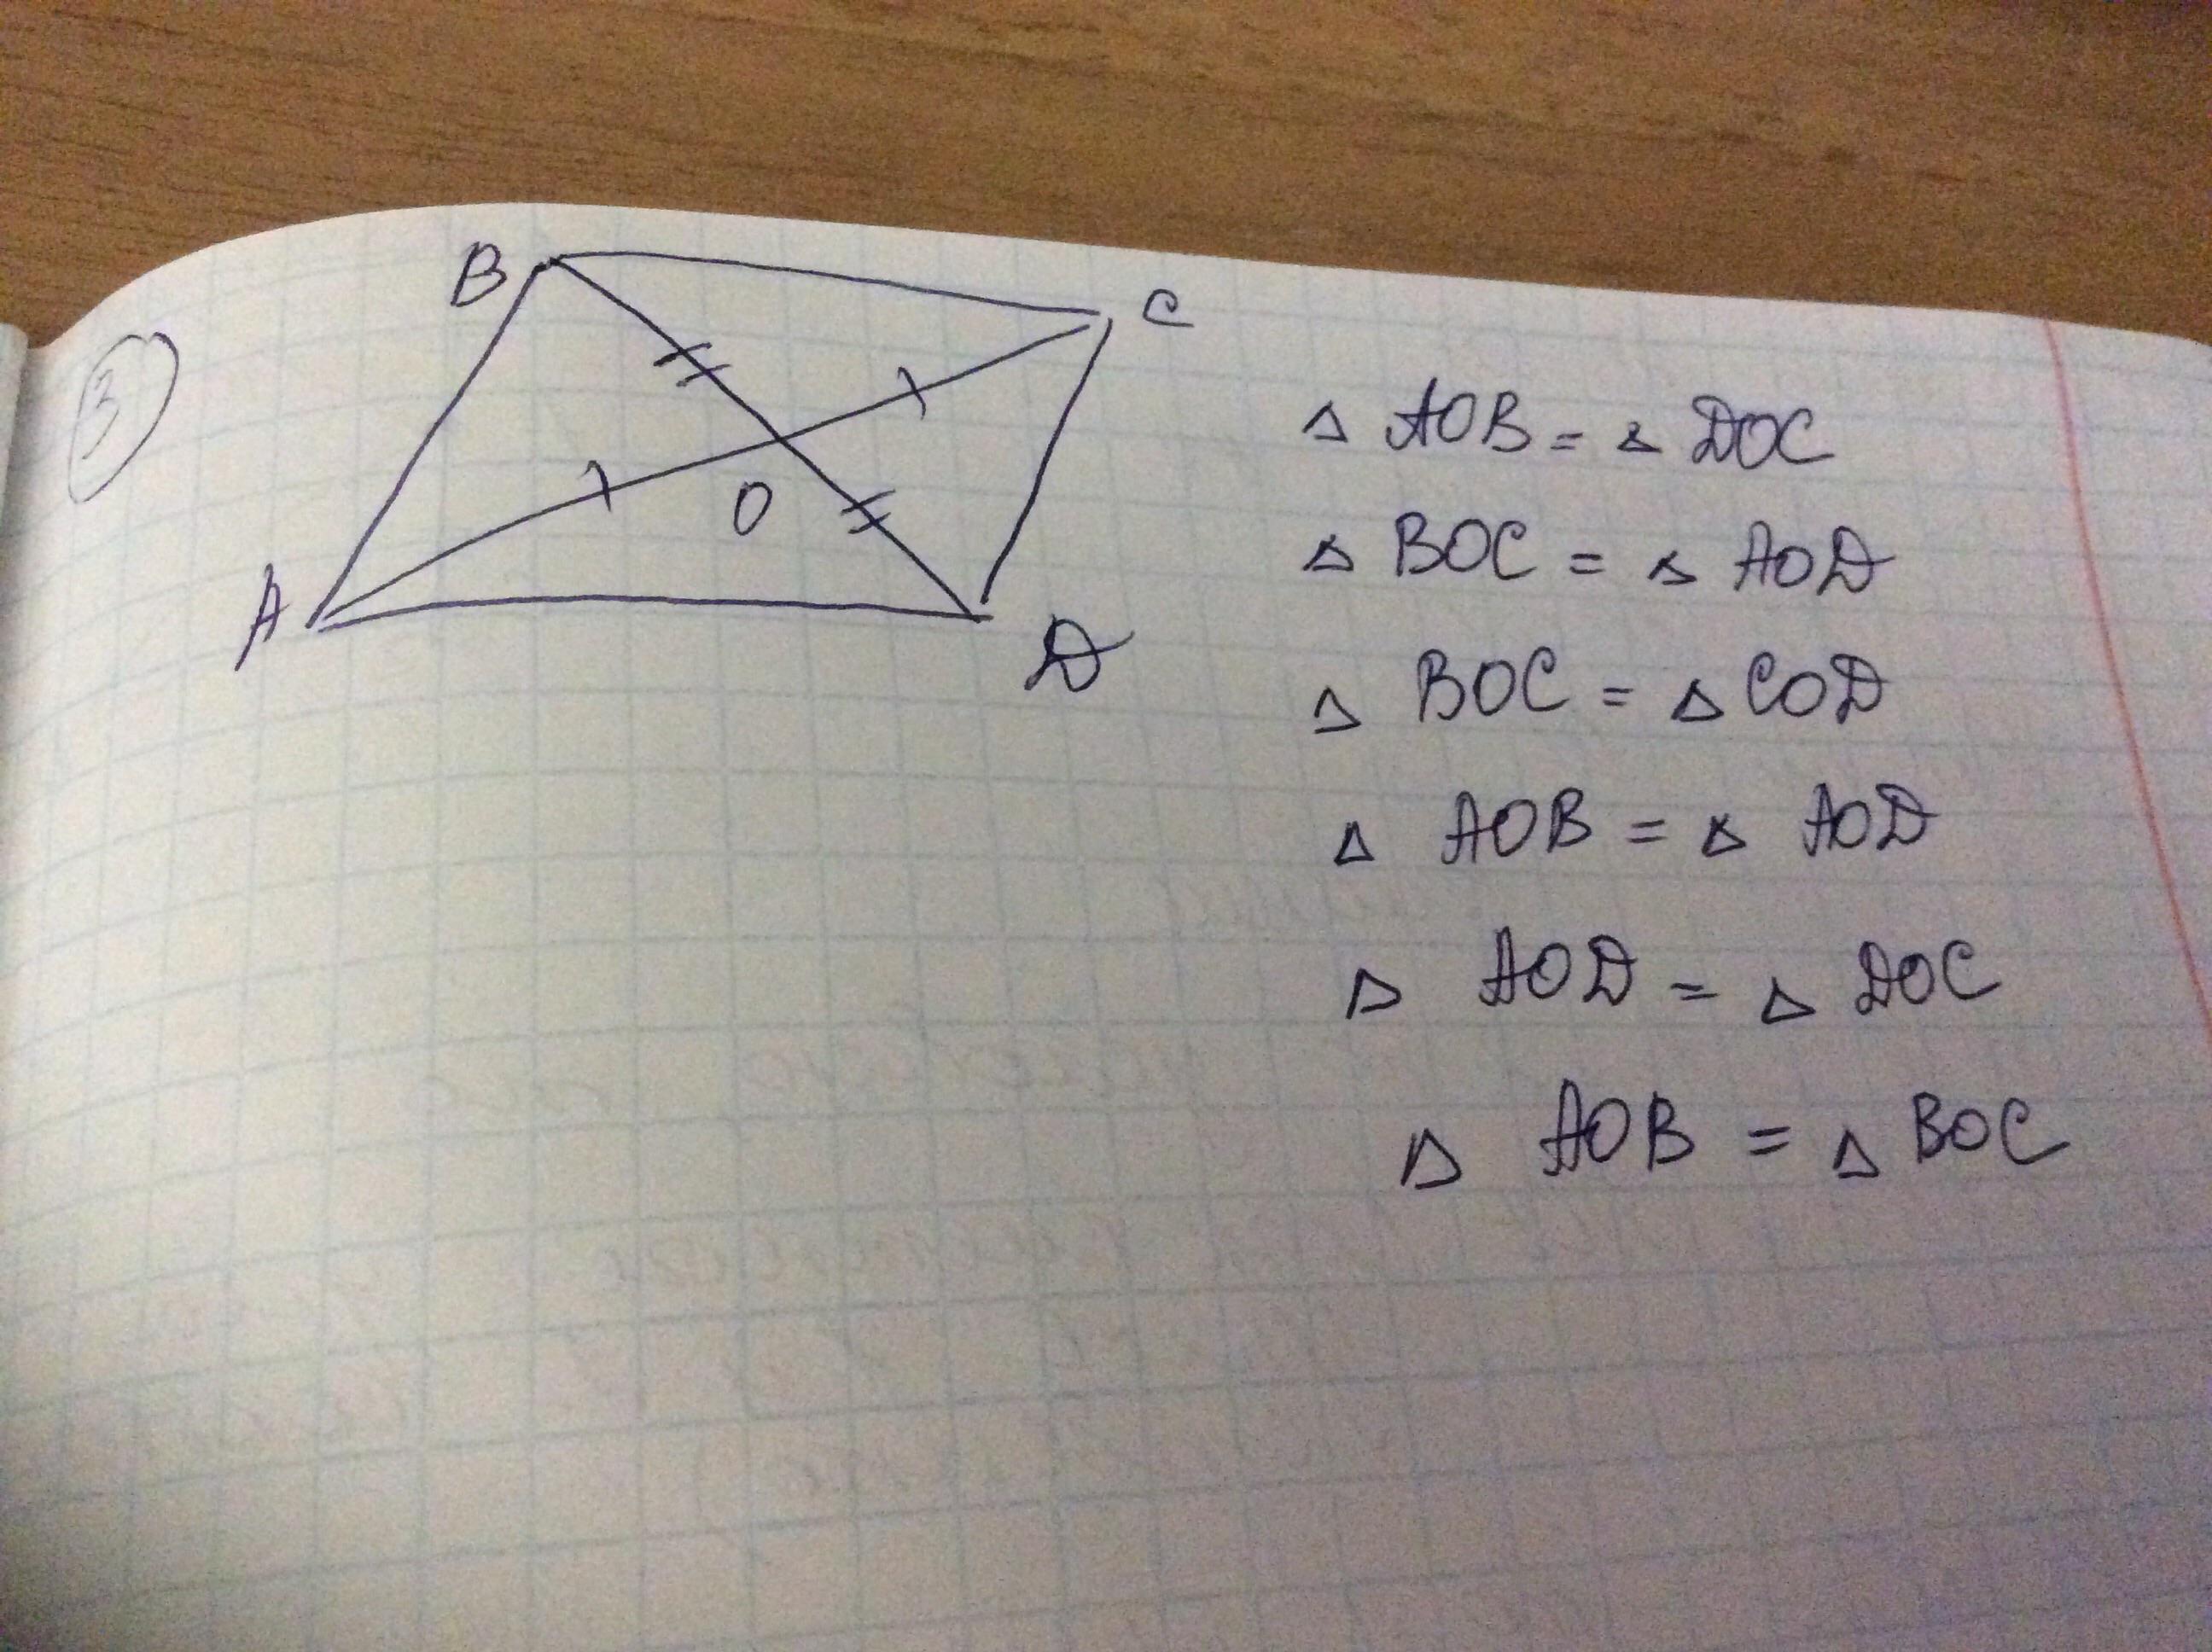 3
B
C
A
O
D
△ AOB = △ DOC
△ BOC = △ AOD
△ BOC = △ COD
△ AOB = △ AOD
△ AOD = △ DOC
△ AOB = △ BOC